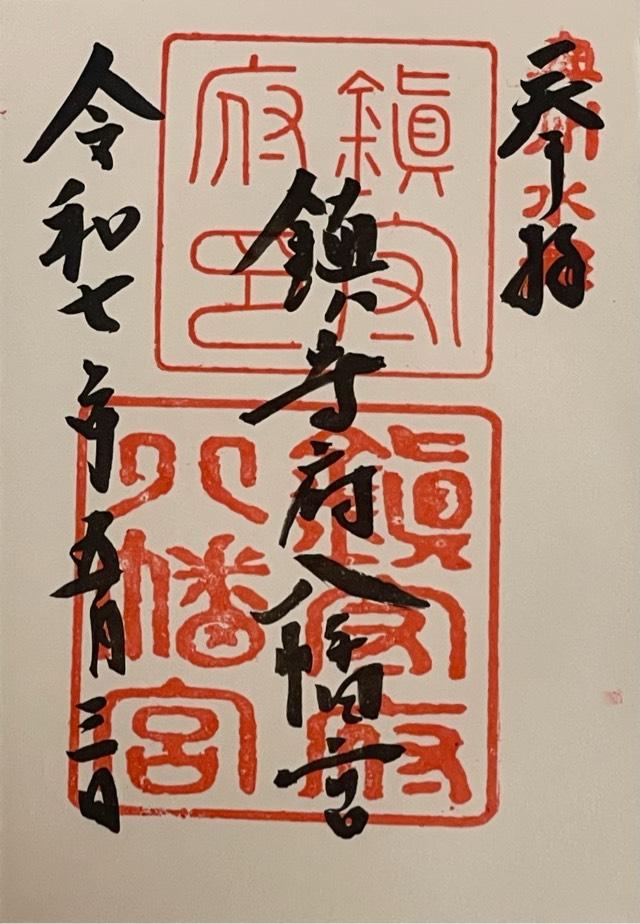 奥州水沢
奉拝
鎮守府印
鎮守府八幡宮
鎮守府八幡宮
令和七年五月三日